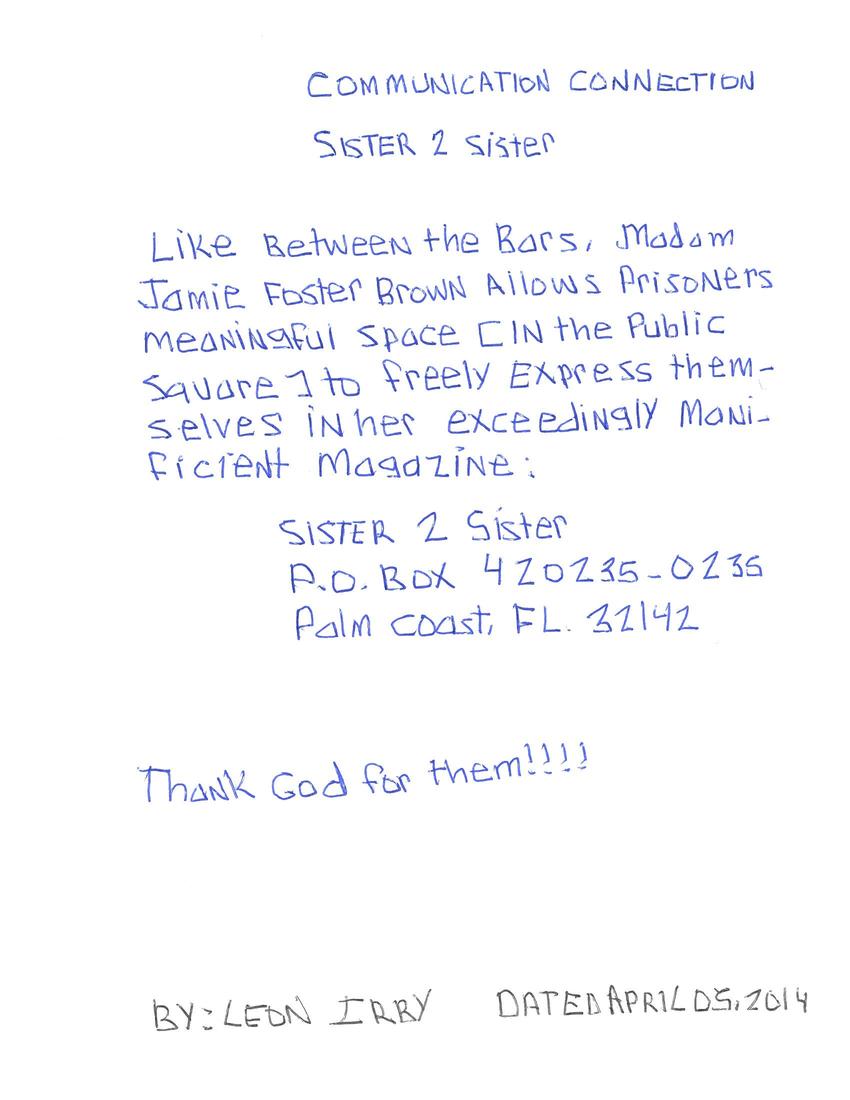 COMMUNICATION CONNECTION
SISTER 2 Sister
Like Between the Bars, Madam
Jamie Foster Brown Allows Prisoners
meaningful space [IN the Public
Square] to freely Express them-
selves in her exceedingly Mani-
ficient Magazine:
SISTER 2 Sister
P.O. BOX 420235-0235
Palm Coast, FL. 32142
Thank God for them!!!!
BY: LEON IRBY DATED APRIL 05, 2014